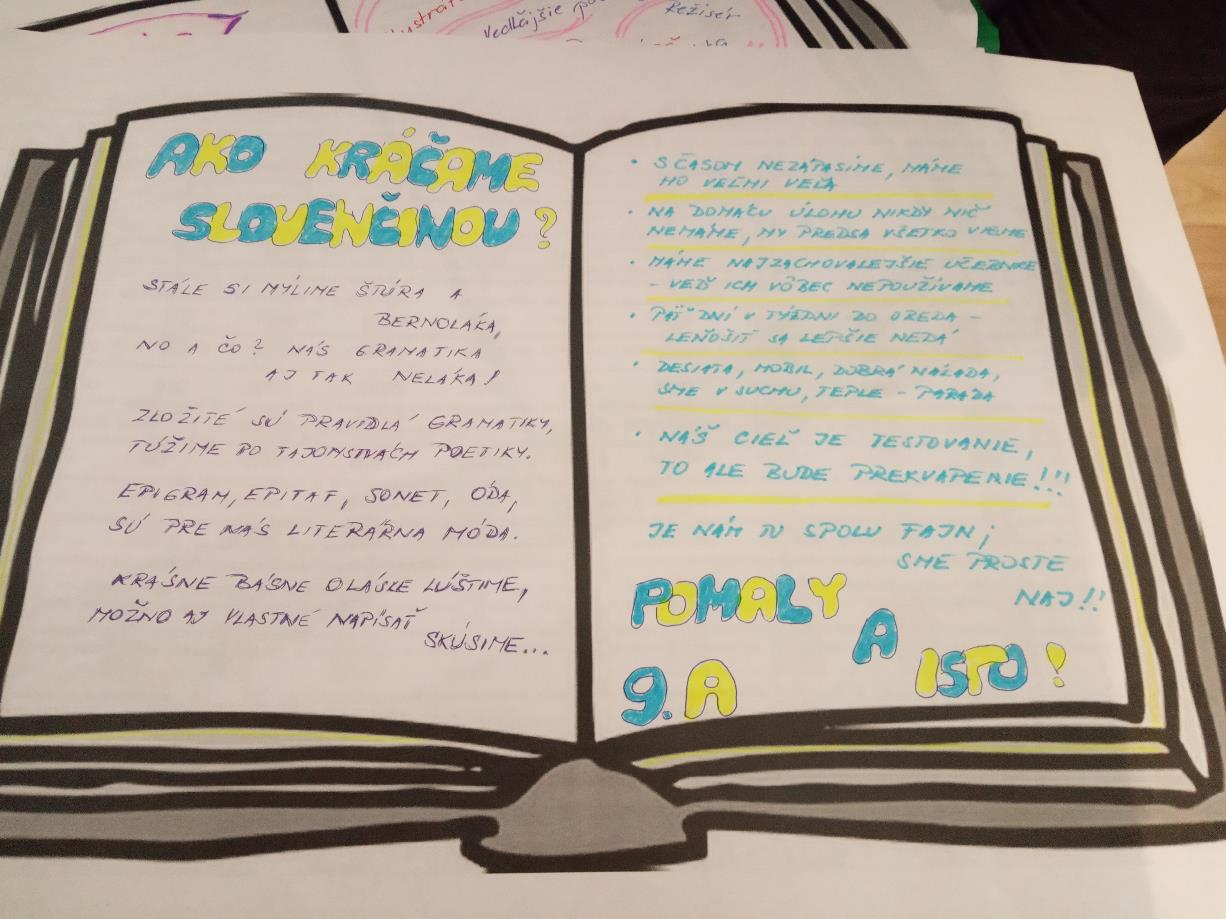 Vedľajšie
Režisér
AKO KRÁČAME
SLOVENČINOU?
STÁLE SI MÝLIME ŠTÚRA A
BERNOLÁKA,
NO A ČO? NÁS GRAMATIKA
AJ TAK NELÁKA!
ZLOŽITÉ SÚ PRAVIDLÁ GRAMATIKY,
TÚŽIME PO TAJOMSTVÁCH POETIKY.
EPIGRAM, EPITAF, SONET, ÓDA,
SÚ PRE NÁS LITERÁRNA MÓDA.
KRÁSNE BÁSNE O LÁSKE LÚŠTIME,
MOŽNO AJ VLASTNÉ NAPÍSAŤ
SKÚSIME...
• S ČASOM NEZÁPASIME, MÁME
HO VEĽMI VEĽA
• NA DOMÁCU ÚLOHU NIKDY NIČ
NEMÁME, MY PREDSA VŠETKO VIEME
• MÁME NAJZACHOVALEJŠIE UČEBNICE
- VEĎ ICH VÔBEC NEPOUŽÍVAME
• PÄŤ DNÍ V TÝŽDNI DO OBEDA -
LEŇOŠIŤ SA LEPŠIE NEDÁ
• DESIATA, MOBIL, DOBRÁ NÁLADA,
SME V SUCHU, TEPLE - PARÁDA
• NÁŠ CIEĽ JE TESTOVANIE,
TO ALE BUDE PREKVAPENIE!!!
JE NÁM TU SPOLU FAJN;
SME PROSTE
NAJ!!
POMALY
A
ISTO!
9. A